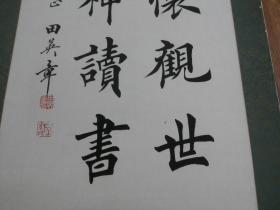 懷觀世
神讀書
正 田英章